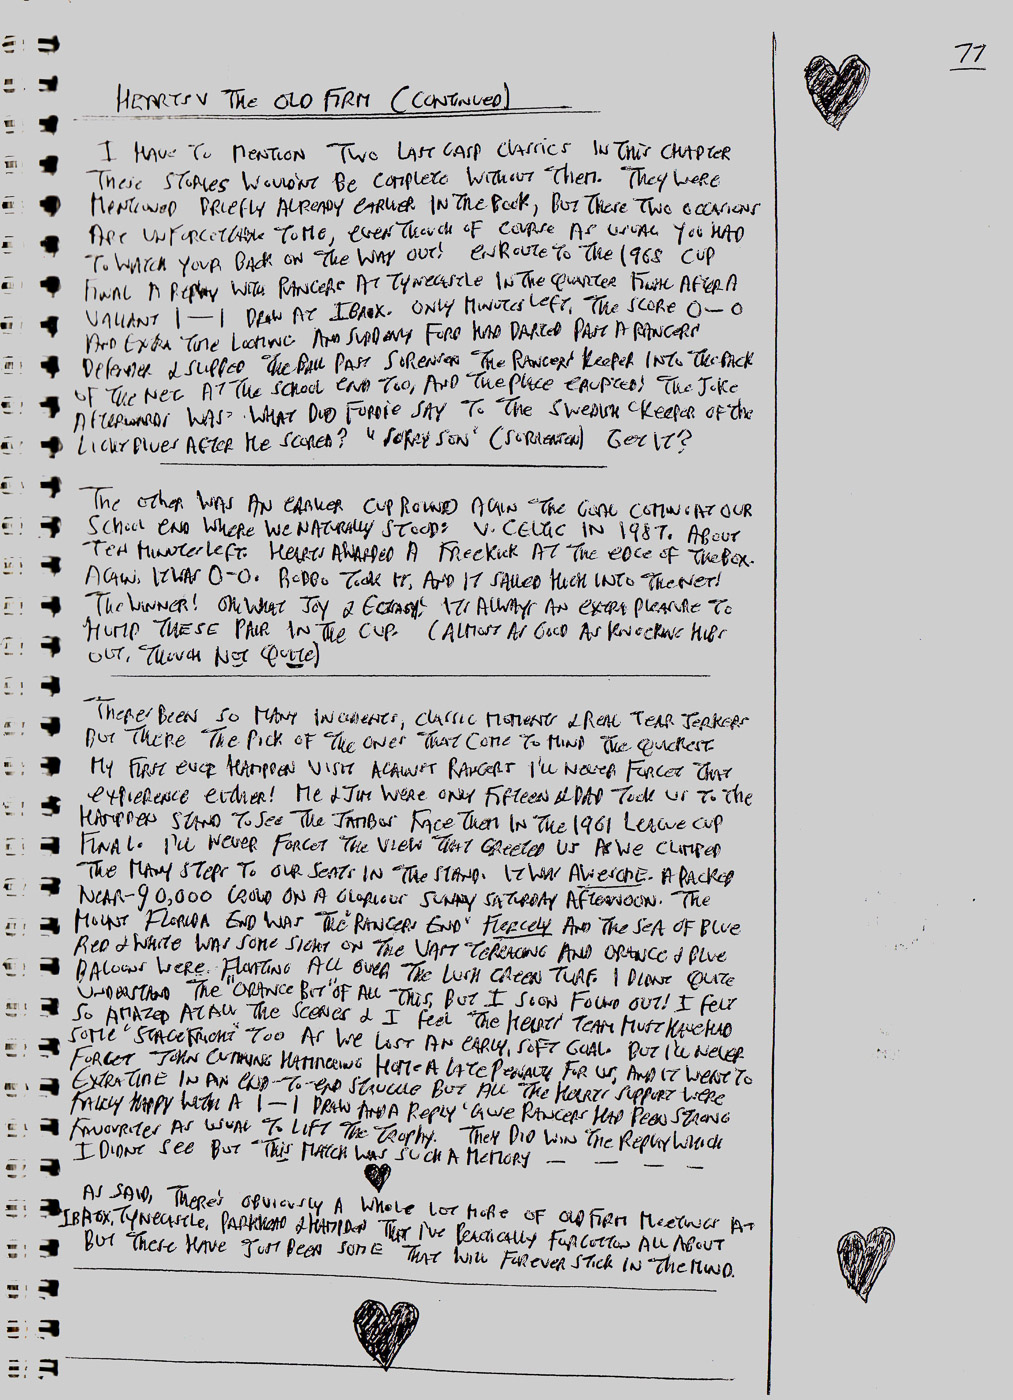 77
HEARTS V THE OLD FIRM (CONTINUED)
I HAVE TO MENTION TWO LAST GASP CLASSICS IN THIS CHAPTER
THESE STORIES WOULDN'T BE COMPLETE WITHOUT THEM. THEY WERE
MENTIONED BRIEFLY ALREADY EARLIER IN THE BOOK, BUT THESE TWO OCCASIONS
ARE UNFORGETTABLE TO ME, EVEN THOUGH OF COURSE AS USUAL YOU HAD
TO WATCH YOUR BACK ON THE WAY OUT! ENROUTE TO THE 1968 CUP
FINAL A REPLAY WITH RANGERS AT TYNECASTLE IN THE QUARTER FINAL AFTER A
VALIANT 1—1 DRAW AT IBROX. ONLY MINUTES LEFT, THE SCORE 0—0
AND EXTRA TIME LOOMING AND SUDDENLY FORD HAD DARTED PAST A RANGERS
DEFENDER & SLIPPED THE BALL PAST SORENSEN THE RANGERS KEEPER INTO THE BACK
OF THE NET AT THE SCHOOL END TOO, AND THE PLACE ERUPTED! THE JOKE
AFTERWARDS WAS: WHAT DID FORDIE SAY TO THE SWEDISH KEEPER OF THE
LIGHT BLUES AFTER HE SCORED? "SORRY SON" (SORRENSEN) GET IT?
THE OTHER WAS AN EARLIER CUP ROUND AGAIN THE GOAL COMING AT OUR
SCHOOL END WHERE WE NATURALLY STOOD: V. CELTIC IN 1987. ABOUT
TEN MINUTES LEFT. HEARTS AWARDED A FREEKICK AT THE EDGE OF THE BOX.
AGAIN. IT WAS 0-0. ROBBO TOOK IT, AND IT SAILED HIGH INTO THE NET!
THE WINNER! OH WHAT JOY & ECTASY! ITS ALWAYS AN EXTRA PLEASURE TO
HUMP THESE PAIR IN THE CUP. (ALMOST AS GOOD AS KNOCKING HIBS
OUT, THOUGH NOT QUITE)
THERES BEEN SO MANY INCIDENTS, CLASSIC MOMENTS & REAL TEAR JERKERS
BUT THERE THE PICK OF THE ONES THAT COME TO MIND THE QUICKEST
MY FIRST EVER HAMPDEN VISIT AGAINST RANGERS I'LL NEVER FORGET THAT
EXPIERENCE EITHER! ME & JIM WERE ONLY FIFTEEN & DAD TOOK US TO THE
HAMPDEN STAND TO SEE THE JAMBOS FACE THEM IN THE 1961 LEAGUE CUP
FINAL. I'LL NEVER FORGET THE VIEW THAT GREETED US AS WE CLIMBED
THE MANY STEPS TO OUR SEATS IN THE STAND. IT WAS AWESOME. A PACKED
NEAR-90,000 CROWD ON A GLORIOUS SUNNY SATURDAY AFTERNOON. THE
MOUNT FLORIDA END WAS THE "RANGERS END" FIERCELY AND THE SEA OF BLUE
RED & WHITE WAS SOME SIGHT ON THE VAST TERRACING AND ORANGE & BLUE
BALOONS WERE FLOATING ALL OVER THE LUSH GREEN TURF. I DIDNT QUITE
UNDERSTAND THE "ORANGE BIT" OF ALL THIS, BUT I SOON FOUND OUT! I FELT
SO AMAZED AT ALL THE SCENES & I FEEL THE HEARTS TEAM MUST HAVE HAD
SOME "STAGEFRIGHT" TOO AS WE LOST AN EARLY, SOFT GOAL. BUT I'LL NEVER
FORGET JOHN CUMMING HAMMERING HOME A LATE PENALTY FOR US, AND IT WENT TO
EXTRA TIME IN AN END-TO-END STRUGGLE BUT ALL THE HEARTS SUPPORT WERE
FAIRLY HAPPY WITH A 1—1 DRAW AND A REPLY 'CAUSE RANGERS HAD BEEN STRONG
FAVOURITES AS USUAL TO LIFT THE TROPHY. THEY DID WIN THE REPLAY WHICH
I DIDNT SEE BUT THIS MATCH WAS SUCH A MEMORY — — — —
AS SAID, THERE'S OBVIOUSLY A WHOLE LOT MORE OF OLD FIRM MEETINGS AT
IBROX, TYNECASTLE, PARKHEAD & HAMPDEN THAT I'VE PRACTICALLY FORGOTTON ALL ABOUT
BUT THESE HAVE JUST BEEN SOME THAT WILL FOREVER STICK IN THE MIND.